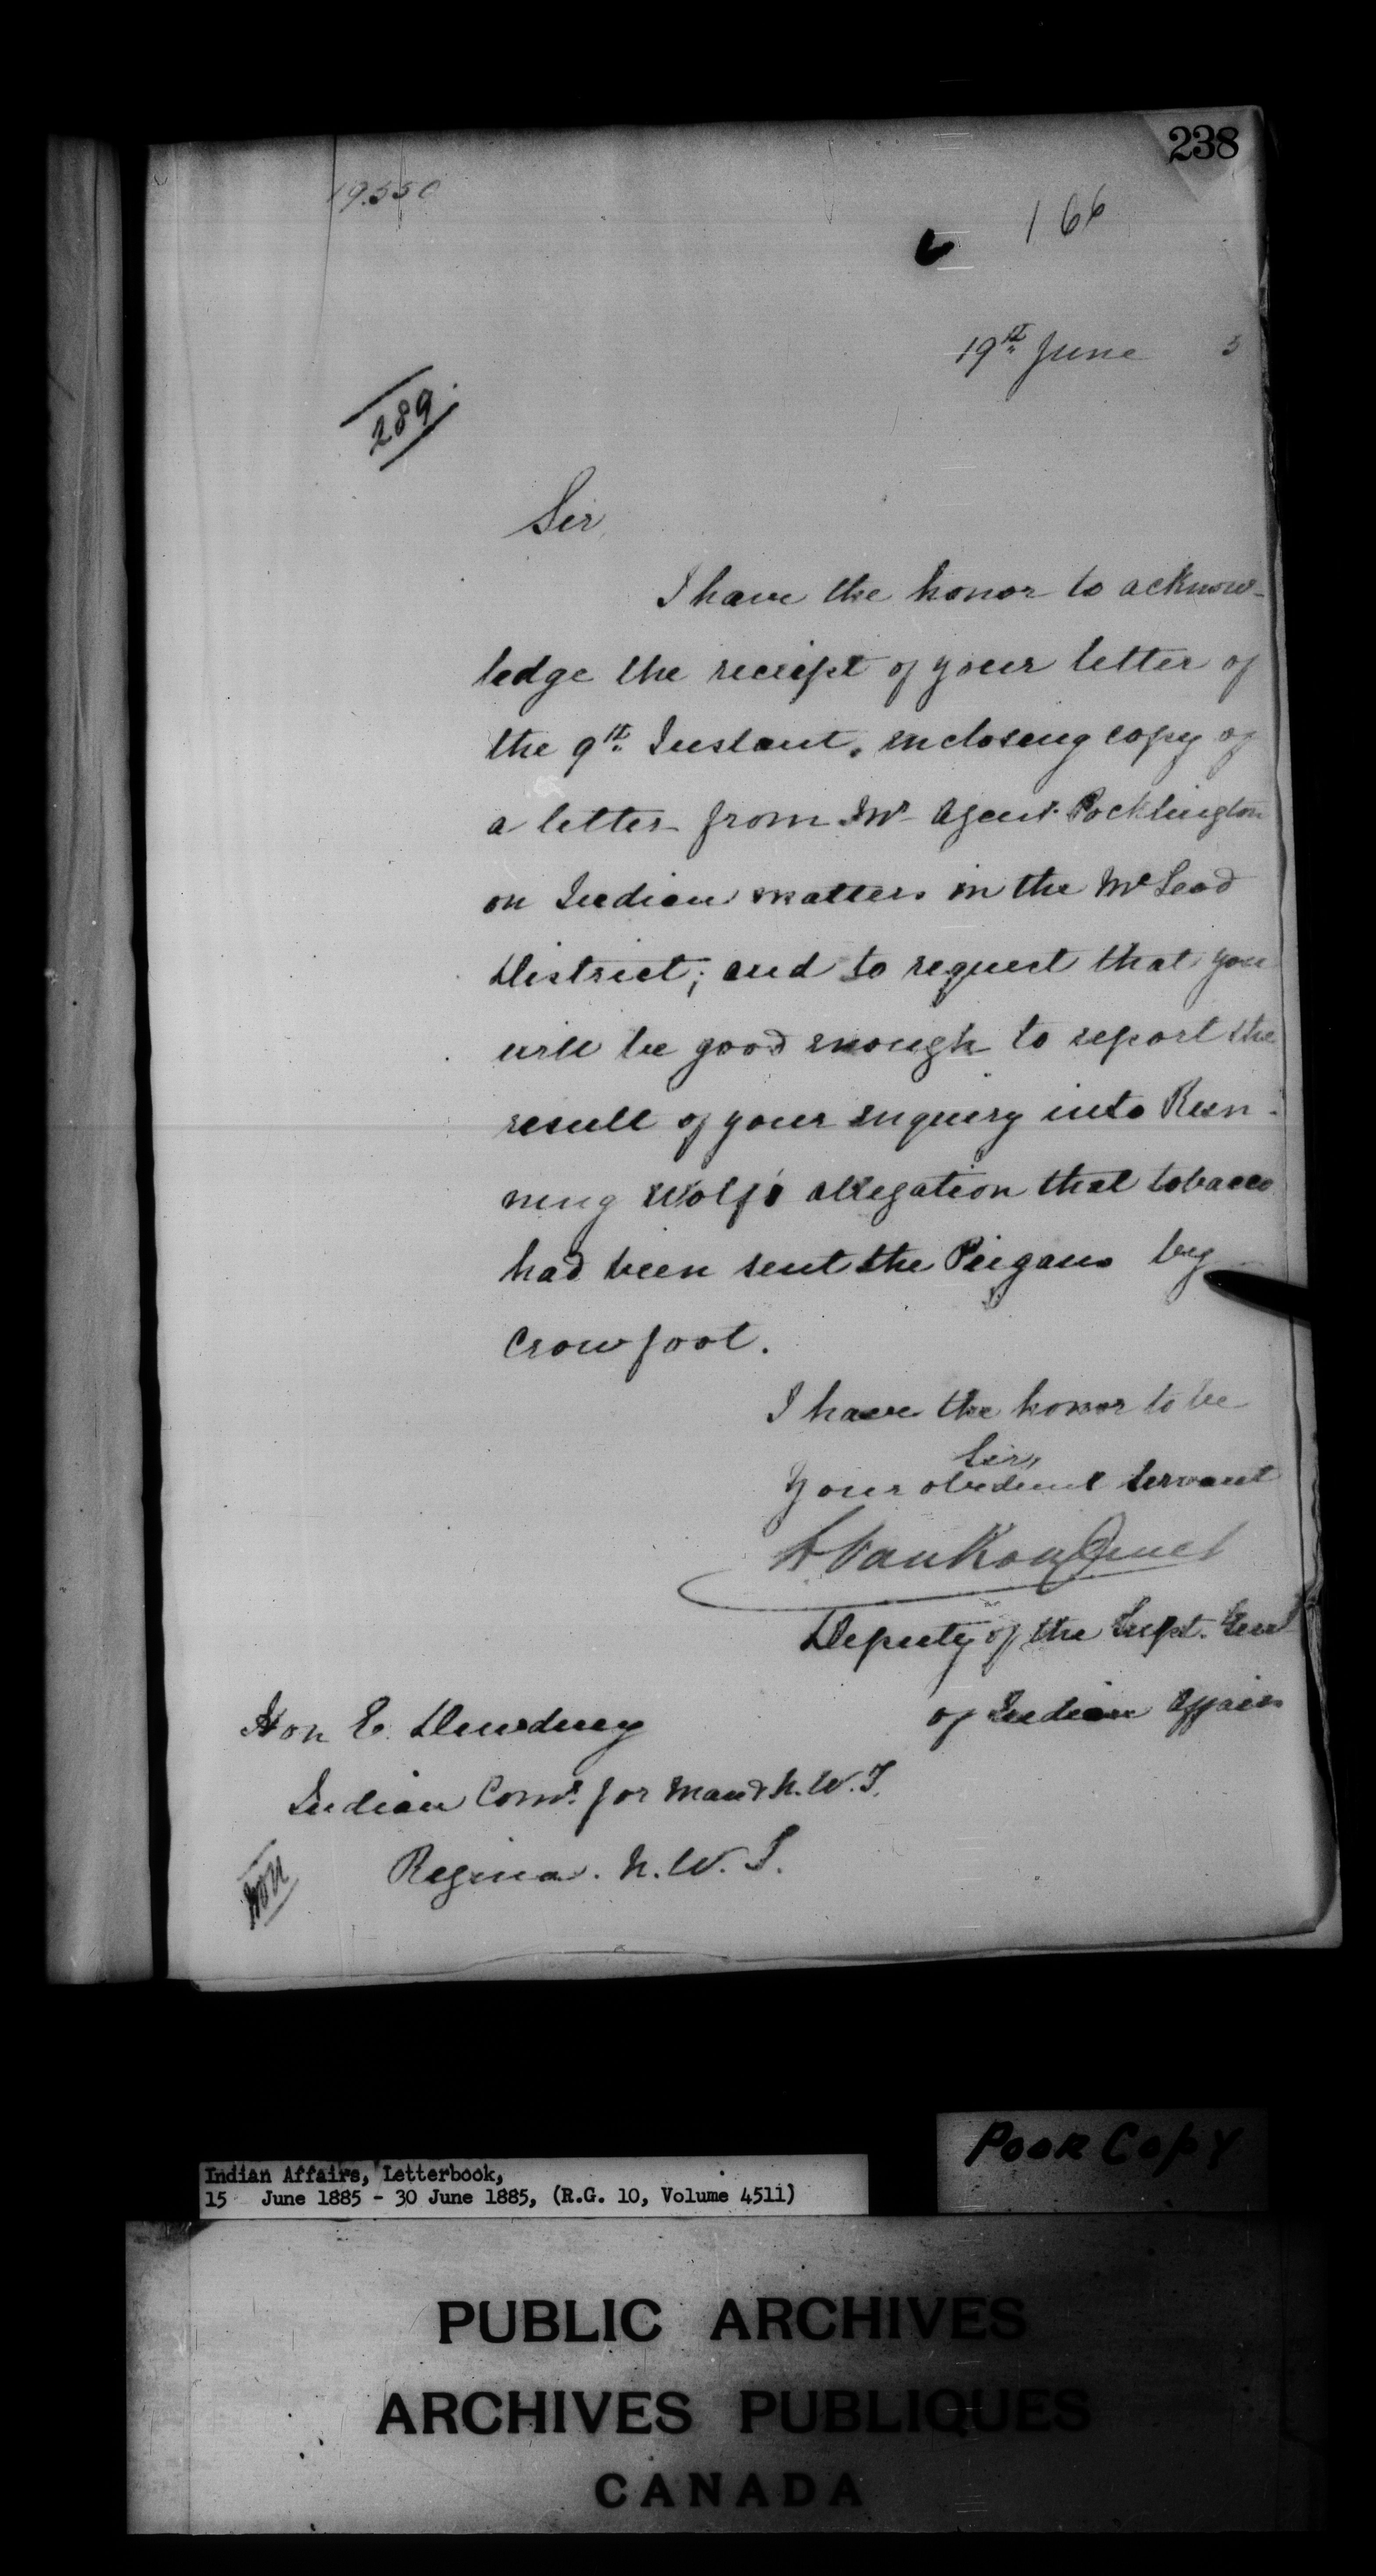 238
19.550
166
19th June 5
289
Sir,
I have the honor to acknow-
ledge the receipt of your letter of
the 9th Instant, enclosing copy of
a letter from Mr Agent Pocklington
on Indian matters in the McLeod
District; and to request that you
will be good enough to report the
result of your enquiry into Run-
ning Wolf's allegation that tobacco
had been sent the Piegans by
Crowfoot.
I have the honor to be
Sir,
Your obedient Servant
L. VanKoughnet
Deputy of the Supt. Genl
of Indian Affairs
Hon E. Dewdney
Indian Comr. for Man & N.W.T.
Regina. N.W.T.
Poor Copy
Indian Affairs, Letterbook,
15 June 1885 - 30 June 1885, (R.G. 10, Volume 4511)
PUBLIC ARCHIVES
ARCHIVES PUBLIQUES
CANADA